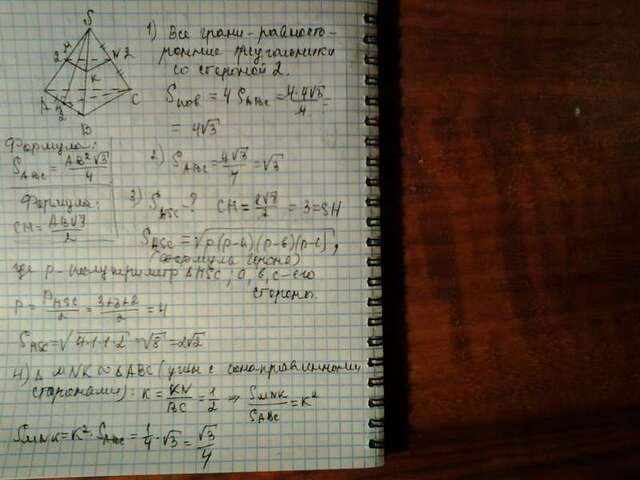 S
M
2
N 2
K
A
H
2
B
C
1) Все грани - равносто-
ронние треугольники
со стороной 2.
Sпов = 4 SABC = 4·4√3/4 =
= 4√3
Формула:
SABC = AB²√3/4
Формула:
CH = AB√3/2
2) SABC = 4√3/4 = √3
3) SHSC - ? CH = = 3 = SH
SHSC = √p(p-a)(p-b)(p-c),
(формула Герона)
где p - полупериметр ΔHSC; a, b, c - его
стороны.
P = PHSC/2 = 3+3+2/2 = 4
SHSC = √4·1·1·2 = √8 = 2√2
4) Δ MNK ∞ ΔABC (углы с сонаправленными
сторонами): K = KN/BC = 1/2 ⇒ SMNK/SABC = K²
SMNK = K²·SABC = 1/4·√3 = √3/4